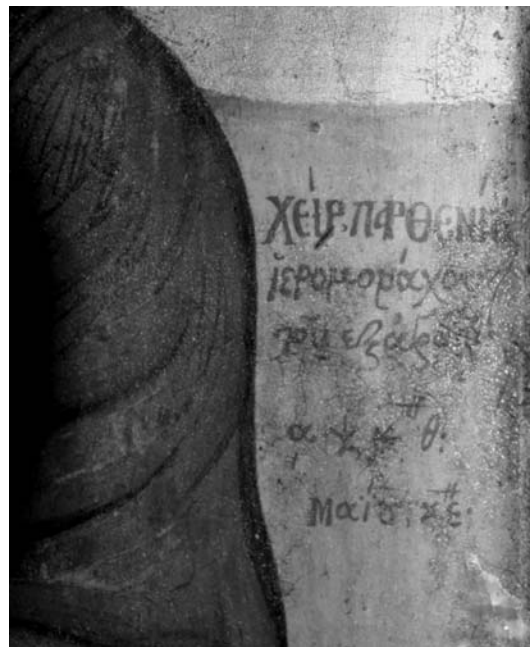 ΧΕΙΡ. ΠΑΡΘΕΝΙΟΥ
ἱερομονάχου
τοῦ ἐξ
͵α ψ κ θ:
Μαΐου: κ ε·